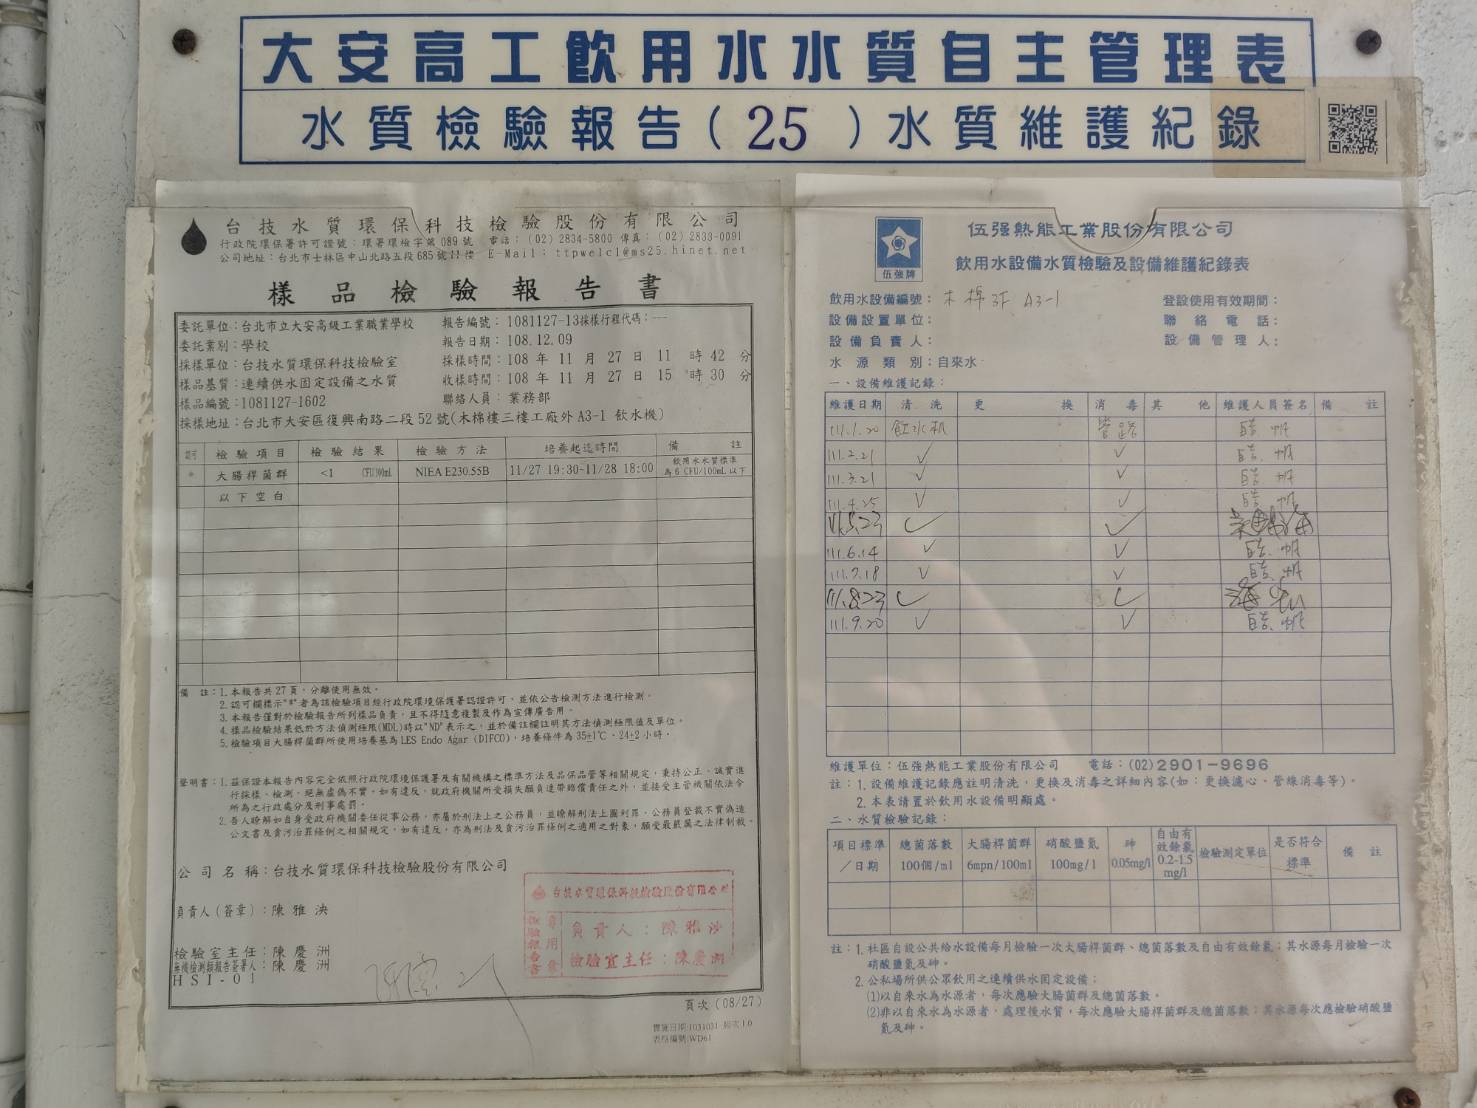 大安高工飲用水水質自主管理表
水質檢驗報告(25)水質維護紀錄
台技水質環保科技檢驗股份有限公司
行政院環保署許可證號：環署環檢字第089號 電話：(02) 2834-5800 傳真：(02) 2833-0091
公司地址：台北市士林區中山北路五段685號11樓 E-Mail：ttpwelcl@ms25.hinet.net
樣品檢驗報告書
委託單位：台北市立大安高級工業職業學校 報告編號：1081127-13採樣行程代碼：---
委託業別：學校 報告日期：108.12.09
採樣單位：台技水質環保科技檢驗室 採樣時間：108 年 11 月 27 日 11 時 42 分
樣品基質：連續供水固定設備之水質 收樣時間：108 年 11 月 27 日 15 時 30 分
樣品編號：1081127-1602 聯絡人員：業務部
採樣地址：台北市大安區復興南路二段52號(木棉樓三樓工廠外A3-1 飲水機)
檢驗項目 檢驗結果 檢驗方法 培養起迄時間 備註
* 大腸桿菌群 <1 CFU/100mL NIEA E230.55B 11/27 19:30~11/28 18:00 飲用水水質標準
為6 CFU/100mL以下
以下空白
備 註：1.本報告共27頁，分離使用無效。
2.認可欄標示"*"者為該檢驗項目經行政院環境保護署認證許可，並依公告檢測方法進行檢測。
3.本報告僅對於檢驗報告所列樣品負責，且不得隨意複製及作為宣傳廣告用。
4.樣品檢驗結果低於方法偵測極限(MDL)時以"ND"表示之，並於備註欄註明其方法偵測極限值及單位。
5.檢驗項目大腸桿菌群所使用培養基為LES Endo Agar (DIFCO)，培養條件為35±1℃、24±2小時。
聲明書：1.茲保證本報告內容完全依照行政院環境保護署及有關機構之標準方法及品保品管等相關規定，秉持公正、誠實進
行採樣、檢測。絕無虛偽不實。如有違反，就政府機關所受損失願負連帶賠償責任之外，並接受主管機關依法令
所為之行政處分及刑事處罰。
2.吾人瞭解如自身受政府機關委任從事公務，亦屬於刑法上之公務員，並瞭解刑法上圖利罪、公務員登載不實偽造
公文書及貪污治罪條例之相關規定，如有違反，亦為刑法及貪污治罪條例之適用之對象，願受最嚴厲之法律制裁。
公司名稱：台技水質環保科技檢驗股份有限公司
負責人(簽章)：陳雅泱
檢驗室主任：陳慶洲
無機檢測類報告簽署人：陳慶洲
HSI-01
台技水質環保科技檢驗股份有限公司
檢驗報告書專用章
負責人：陳雅泱
檢驗室主任：陳慶洲
頁次 (08/27)
實施日期:1031031 版次:1.0
表格編號:WD61
伍強牌
伍强熱能工業股份有限公司
飲用水設備水質檢驗及設備維護紀錄表
飲用水設備編號：木棉3F A3-1 登設使用有效期間：
設備設置單位： 聯絡電話：
設備負責人： 設備管理人：
水源類別：自來水
一、設備維護記錄：
維護日期 清洗 更換 消毒 其他 維護人員簽名 備註
111.1.20 飲水机 管路
111.2.21 ✓ ✓
111.3.21 ✓ ✓
111.4.25 ✓ ✓
111.5.23 ✓ ✓
111.6.14 ✓ ✓
111.7.18 ✓ ✓
111.8.23 ✓ ✓
111.9.20 ✓ ✓
維護單位：伍强熱能工業股份有限公司 電話：(02)2901-9696
註：1.設備維護記錄應註明清洗、更換及消毒之詳細內容(如：更換濾心、管線消毒等)。
2.本表請置於飲用水設備明顯處。
二、水質檢驗記錄：
項目標準／日期 總菌落數100個/ml 大腸桿菌群6mpn/100ml 硝酸鹽氮100mg/l 砷0.05mg/l 自由有效餘氯0.2-1.5mg/l 檢驗測定單位 是否符合標準 備註
註：1.社區自設公共給水設備每月檢驗一次大腸桿菌群、總菌落數及自由有效餘氯；其水源每月檢驗一次
硝酸鹽氮及砷。
2.公私場所供公眾飲用之連續供水固定設備：
(1)以自來水為水源者，每次應驗大腸菌群及總菌落數。
(2)非以自來水為水源者，處理後水質，每次應驗大腸桿菌群及總菌落數；其水源每次應檢驗硝酸鹽
氮及砷。